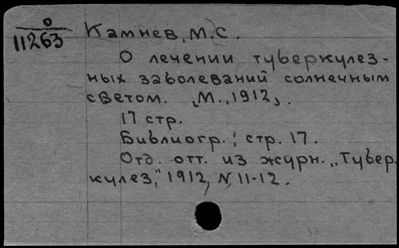 О
11263
Камнев, М.С.
О лечении туберкулез-
ных заболеваний солнечным
светом. М., 1912,.
17 стр.
Библиогр.: стр. 17.
Отд. отт. из журн. „Тубер
кулез", 1912, N 11-12.